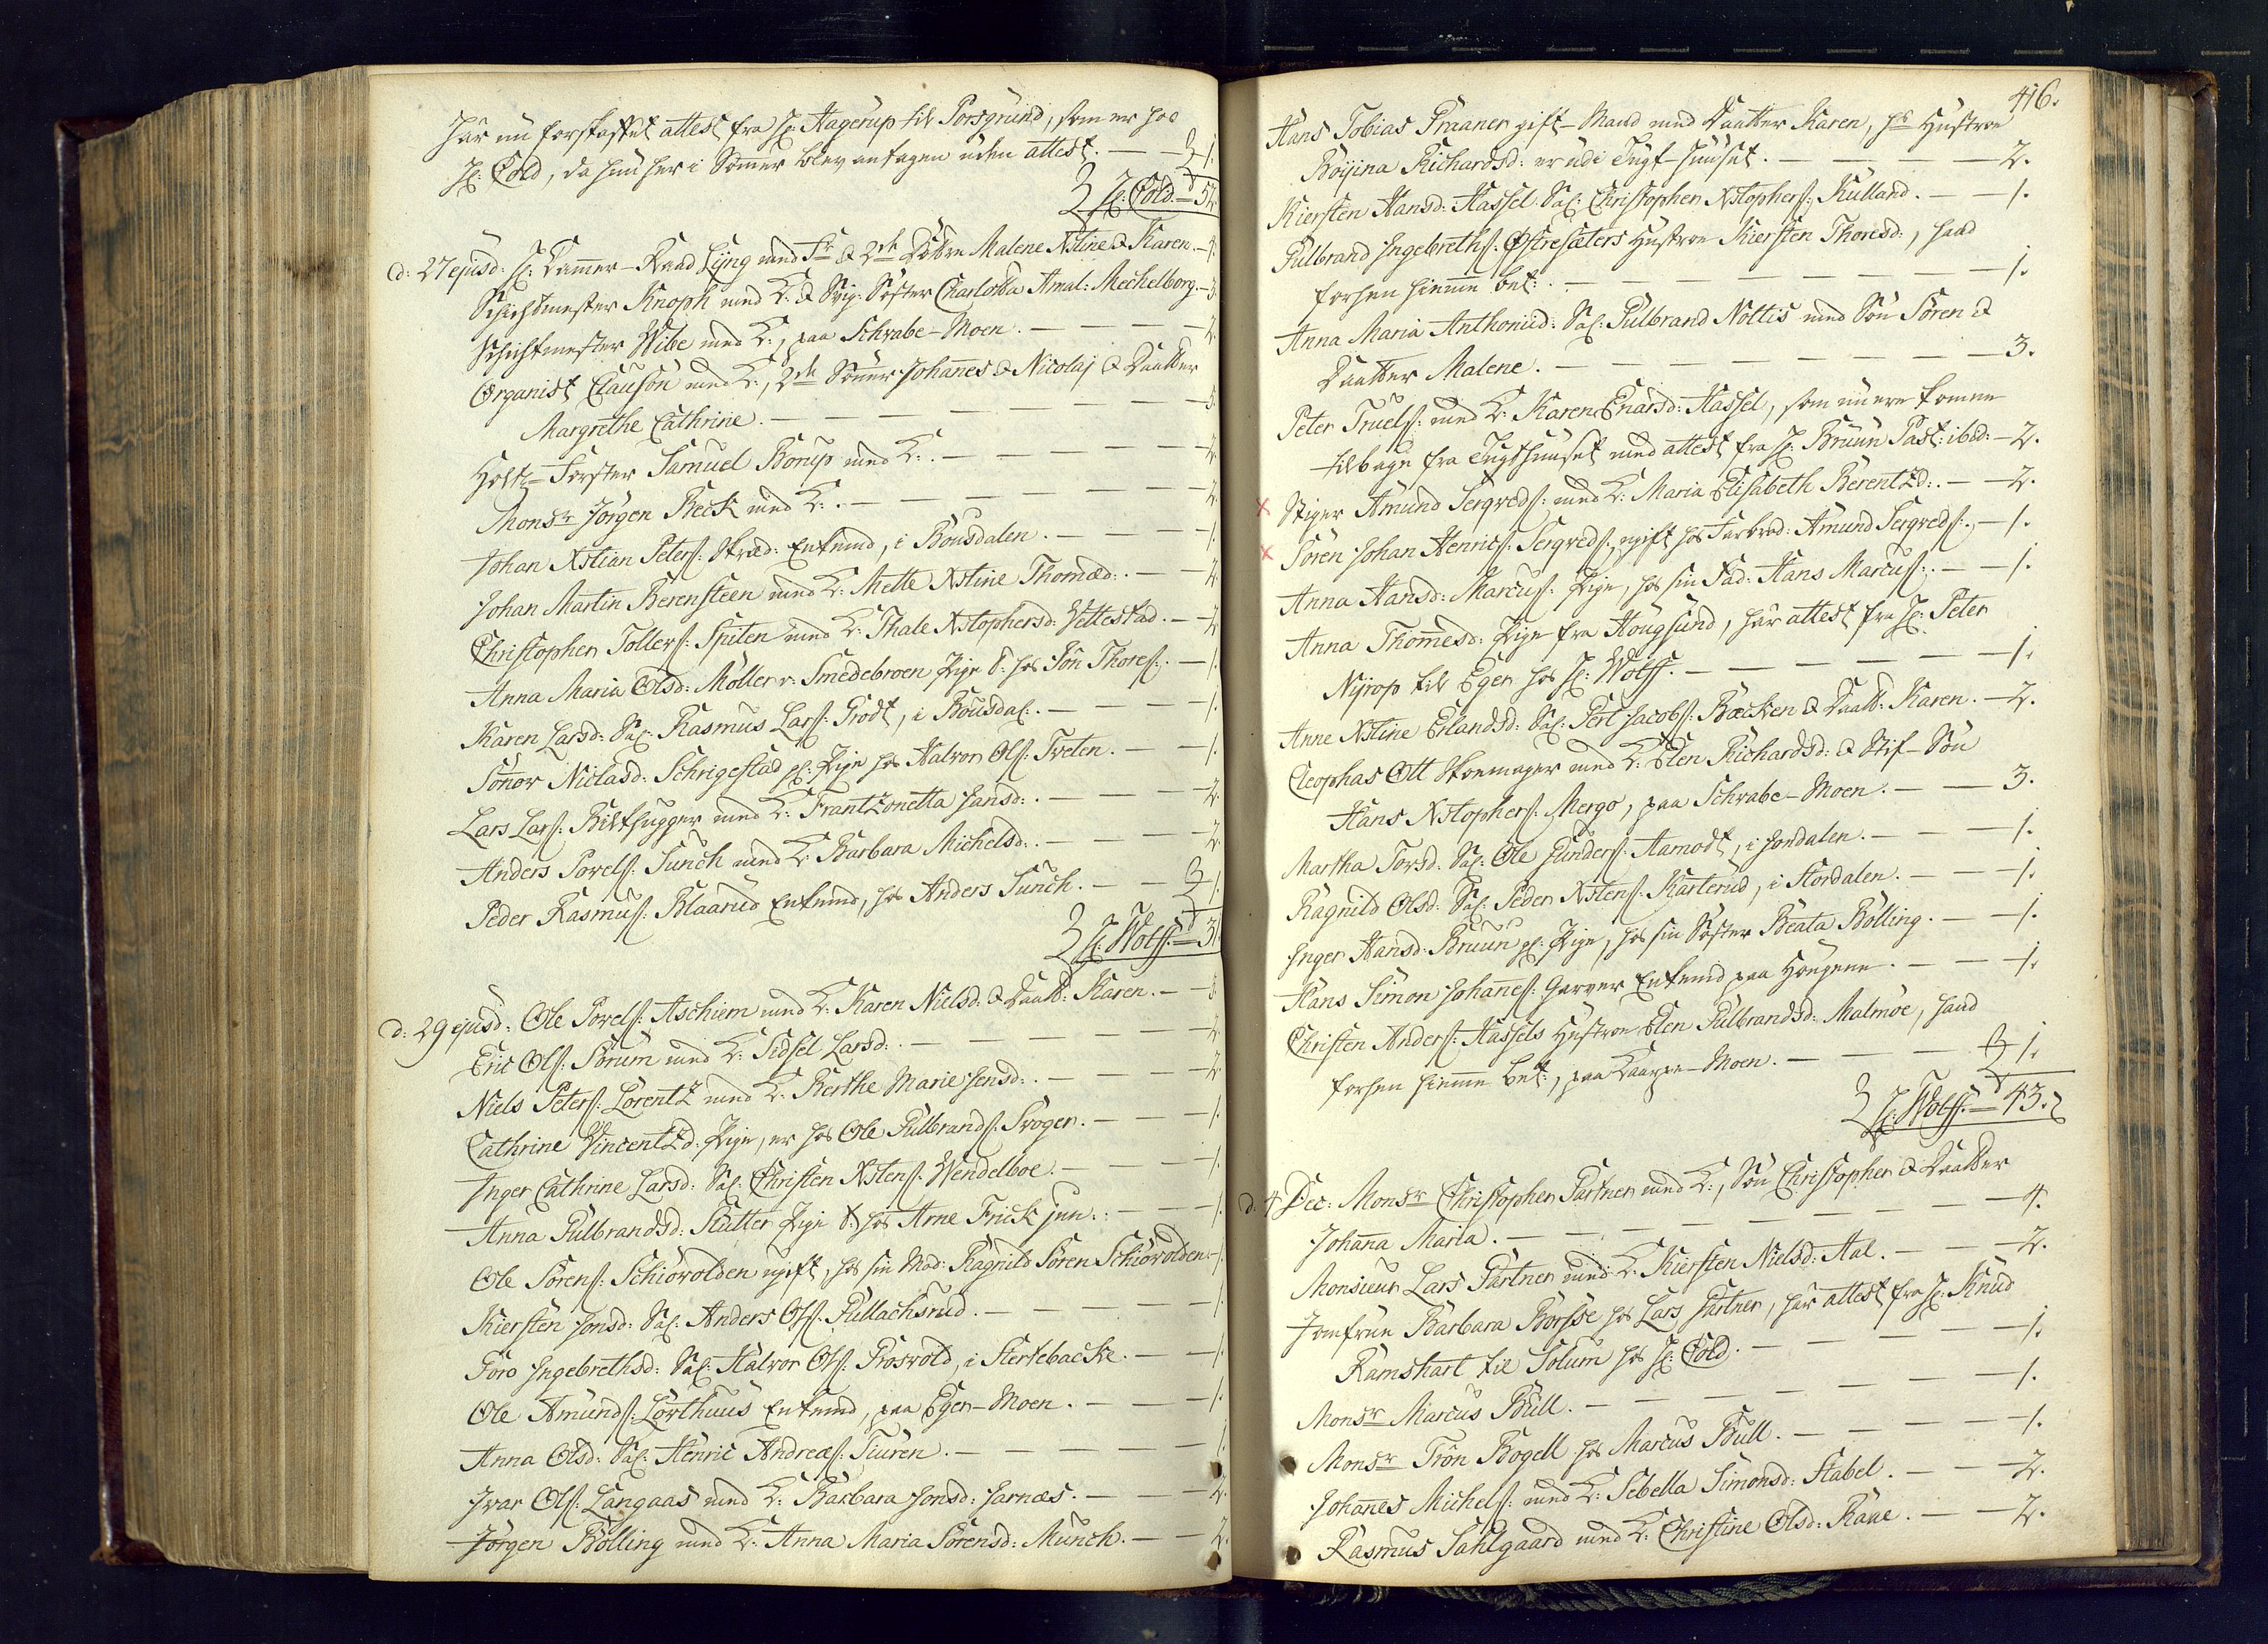 har nu forskaffet attest fra H: Hagerup til Porsgrund, som er hos
H: Cold, da hun her i Somer blev antagen uden attest. — 1.
H: Cold. — 52.
d: 27 ejusd: H: Cammer-Raad Lÿng med Fr & 2de Döttre Malene Xstine & Karen. — 4.
Schichtmester Knoph med K: & Svig: Söster Charlotta Amal: Mechelborg. — 3.
Schichtmester Wibe med K:, paa Schrabe-Moen. — 2.
Organist Clauson med K:, 2de Sönner Johanes & Nicolaj & Daatter
Margrethe Cathrine. — 5.
Holtz-Förster Samuel Borup med K:. — 2.
Monsr Jörgen Beck med K:. — 2.
Johan Xstian Peters: Skræd: Enkemd, i Bousdalen. — 1.
Johan Martin Berensteen med K: Mette Xstine Thomæd:. — 2.
Christopher Tollers: Spiten med K: Thale Xstophersd: Jettestad. — 2.
Anna Maria Olsd: Möller v: Smedebroen Pige t: hos Jön Thores:. — 1.
Karen Larsd: Sal: Rasmus Lars: Grodt, i Bousdal:. — 1.
Sönov Niclasd: Schrigestad gl: Pige hos Halvor Ols: Tveten. — 1.
Lars Lars: Bilthugger med K: Frantzonetta Jansd:. — 2.
Anders Povels: Sunch med K: Barbara Michelsd:. — 2.
Peder Rasmus: Blaarud Enkemd, hos Anders Sunch. — 1.
H: Wolff. — 31.
d: 29 ejusd: Ole Povels: Aschiem med K: Karen Nielsd: & Daatt: Karen. — 3.
Eric Ols: Sörum med K: Sidsel Larsd:. — 2.
Niels Peters: Lorentz med K: Berthe Marie Jensd:. — 2.
Cathrine Vincentzd: Pige, er hos Ole Gulbrands: Svoger. — 1.
Inger Cathrine Larsd: Sal: Christen Xstens: Wendelboe. — 1.
Anna Gulbrandsd: Slutter Pige t: hos Arne Frick jun:. — 1.
Ole Sörens: Schiörvolden ugift, hos sin Mod: Ragnild Sören Schiörvolden. — 1.
Kiersten Jonsd: Sal: Anders Ols: Gullachsrud. — 1.
Goro Ingebrethsd: Sal: Halvor Ols: Grosvold, i Sterkebæcke. — 1.
Ole Amunds: Lörthuus Enkemd, paa Eger-Moen. — 1.
Anna Olsd: Sal: Henric Andreæs: Tiuren. — 1.
Ivar Ols: Langaas med K: Barbara Jonsd: Jarnæs. — 2.
Jörgen Bölling med K: Anna Maria Sörensd: Munch. — 2.
416.
Hans Tobias Praaner gift-Mand med Daatter Karen, hs Hustroe
Boÿina Richardsd: er udi Tugt-Huuset. — 2.
Kiersten Hansd: Hassel Sal: Christopher Xstophers: Kulland. — 1.
Gulbrand Ingebreths: Östresæters Hustroe Kiersten Thoresd:, haud
forhen hieme bet:. — 1.
Anna Maria Anthoniid: Sal: Gulbrand Nottis med Sön Sören &
Daatter Malene. — 3.
Peter Truels: med K: Karen Enarsd: Hassel, som nu ere komne
tilbage fra Tugthuuset med attest fra H: Bruun Past: ibid: — 2.
x Stiger Amund Sergveds: med K: Maria Elisabeth Berentzd:. — 2.
x Sören Johan Henrics: Sergveds: ugift hos Farbrod: Amund Sergveds:. — 1.
Anna Hansd: Marcus: Pige, hos sin Fad: Hans Marcus:. — 1.
Anna Thomesd: Pige fra Hougsund, har attest fra H: Peter
Nÿrop til Eger hos H: Wolff. — 1.
Anne Xstine Erlandsd: Sal: Pert Jacobs: Bæcken & Daatt: Karen. — 2.
Cleophas Ott Skoemager med K: Elen Richardsd: & Stif-Sön
Hans Xstophers: Mergo, paa Schrabe-Moen. — 3.
Martha Torsd: Sal: Ole Gunders: Aamodt, i Jondalen. — 1.
Ragnild Olsd: Sal: Peder Xstens: Karterud, i Stordalen. — 1.
Inger Hansd: Bruun gl: Pige, hos sin Söster Beata Bölling. — 1.
Hans Simon Johanes: Garver Enkemd paa Hougene. — 1.
Christen Anders: Hassels Hustroe Elen Gulbrandsd: Malmöe, haud
forhen hieme bet:, paa Taarpe-Moen. — 1.
H: Wolff. — 43.
d. 4 Dec: Monsr Christopher Gartner med K:, Sön Christopher & Daatter
Johana Maria. — 4.
Monsieur Lars Gartner med K: Kiersten Nielsd: Aal. — 2.
Jomfrue Barbara Borsse hos Lars Gartner, har attest fra H: Knud
Ramshart til Solum hos H: Cold. — 1.
Monsr Marcus Bull. — 1.
Monsr Trön Bogell hos Marcus Bull. — 1.
Johanes Michels: med K: Sebella Simonsd: Stabel. — 2.
Rasmus Sahlgaard med K: Christine Olsd: Raae. — 2.